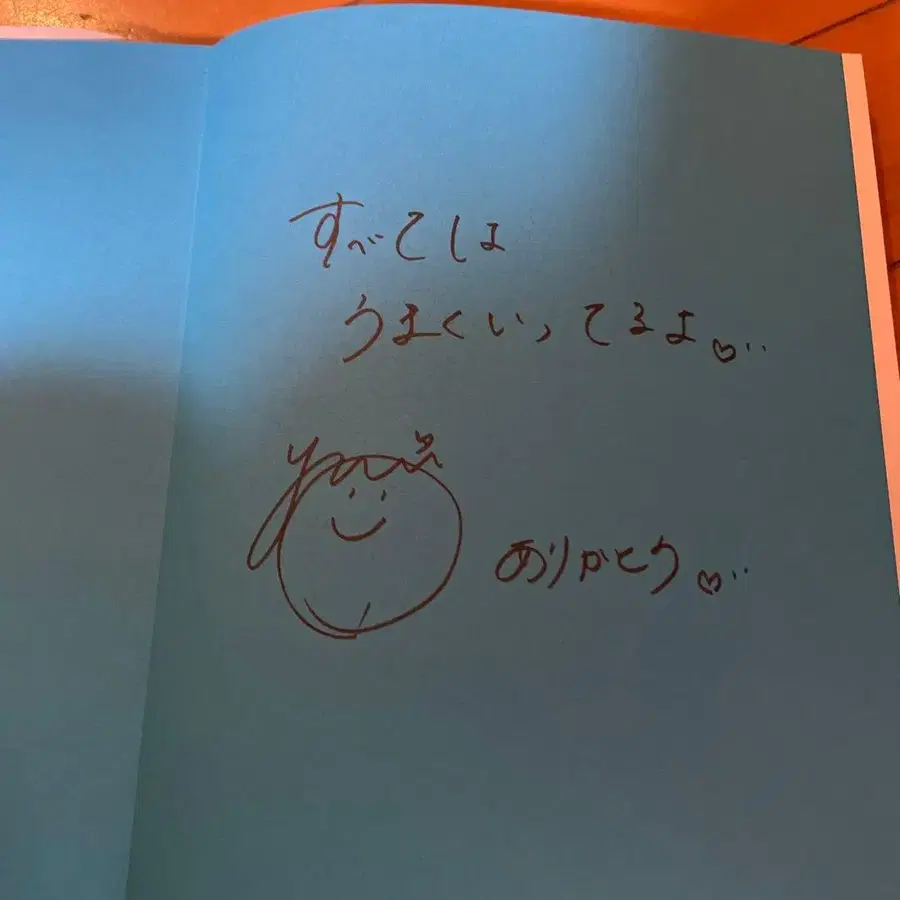 すべては
うまくいってるよ♡‥
ありがとう♡‥